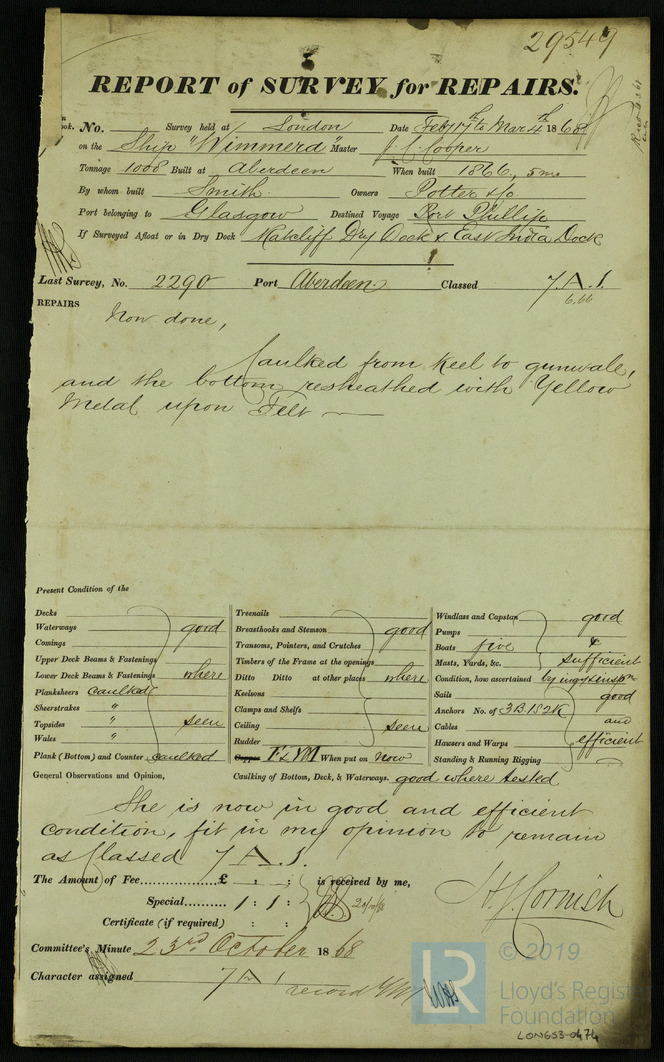 29549
REPORT of SURVEY for REPAIRS.
No. Survey held at London Date Feby 17th to Mar 4th 1868
on the Ship "Wimmera" Master J. C. Cooper
Tonnage 1008 Built at Aberdeen When built 1866, 5 mo
By whom built Smith Owners Potter &Co
Port belonging to Glasgow Destined Voyage Port Phillip
If Surveyed Afloat or in Dry Dock Ratcliff Dry Dock & East India Dock
Last Survey, No. 2290 Port Aberdeen Classed 7.A.1.
6,66
REPAIRS
Now done,
Caulked from Keel to gunwale,
and the bottom resheathed with Yellow
Metal upon Felt
Present Condition of the
Decks
Waterways good
Comings
Upper Deck Beams & Fastenings
Lower Deck Beams & Fastenings where
Planksheers Caulked
Sheerstrakes "
Topsides " seen
Wales "
Plank (Bottom) and Counter caulked
Treenails
Breasthooks and Stemson good
Transoms, Pointers, and Crutches
Timbers of the Frame at the openings
Ditto Ditto at other places where
Keelsons
Clamps and Shelfs
Ceiling seen
Rudder
Copper F&YM When put on Now
Windlass and Capstan good
Pumps &
Boats five
Masts, Yards, &c. sufficient
Condition, how ascertained by
Sails good
Anchors No. of 3B.1S2K and
Cables
Hawsers and Warps efficient
Standing & Running Rigging
General Observations and Opinion, Caulking of Bottom, Deck, & Waterways. good where tested
She is now in good and efficient
condition, fit in my opinion to remain
as Classed 7.A.1.
The Amount of Fee £ : : is received by me,
Special 1 : 1 :
Certificate (if required) : :
H. J. Cornish
Committee's Minute 23rd October 1868
Character assigned 7A1
record YM
© 2019
LR
Lloyd's Register
Foundation
LON653-0474